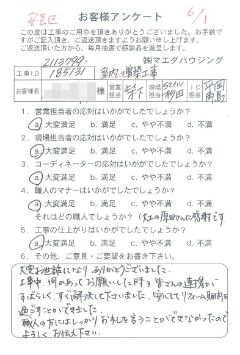 安芸区
お客様アンケート
6/1
この度は工事のご用命を頂きありがとうございました。お手数で
すがご記入頂き、ご返送頂きますようお願い申し上げます。
ご返送頂いた方から、毎月抽選で感謝品を進呈します。
㈱マエダハウジング
工事ID 185131
お客様名 様 営業担当 現場担当 IC担当
1. 営業担当者の応対はいかがでしたでしょうか?
ⓐ大変満足 b. 満足 c. やや不満 d. 不満
2. 現場担当者の応対はいかがでしたでしょうか?
ⓐ大変満足 b. 満足 c. やや不満 d. 不満
3. コーディネーターの応対はいかがでしたでしょうか?
ⓐ大変満足 b. 満足 c. やや不満 d. 不満
4. 職人のマナーはいかがでしたでしょうか?
ⓐ大変満足 b. 満足 c. やや不満 d. 不満
それはどの職人でしょうか?
5. 工事の仕上がりはいかがでしたでしょうか?
ⓐ大変満足 b. 満足 c. やや不満 d. 不満
6. その他、ご意見・ご要望をお書き下さい。
大変お世話になり ありがとうございました。
工事中、何かあってお願いした時も皆さんの連携が
すばらしく、すぐ解決して下さいました。安心してリフォーム期間を
過ごすことができました。
職人の方にはしっかりお礼を言うことができなかったので
よろしくお伝え下さい。